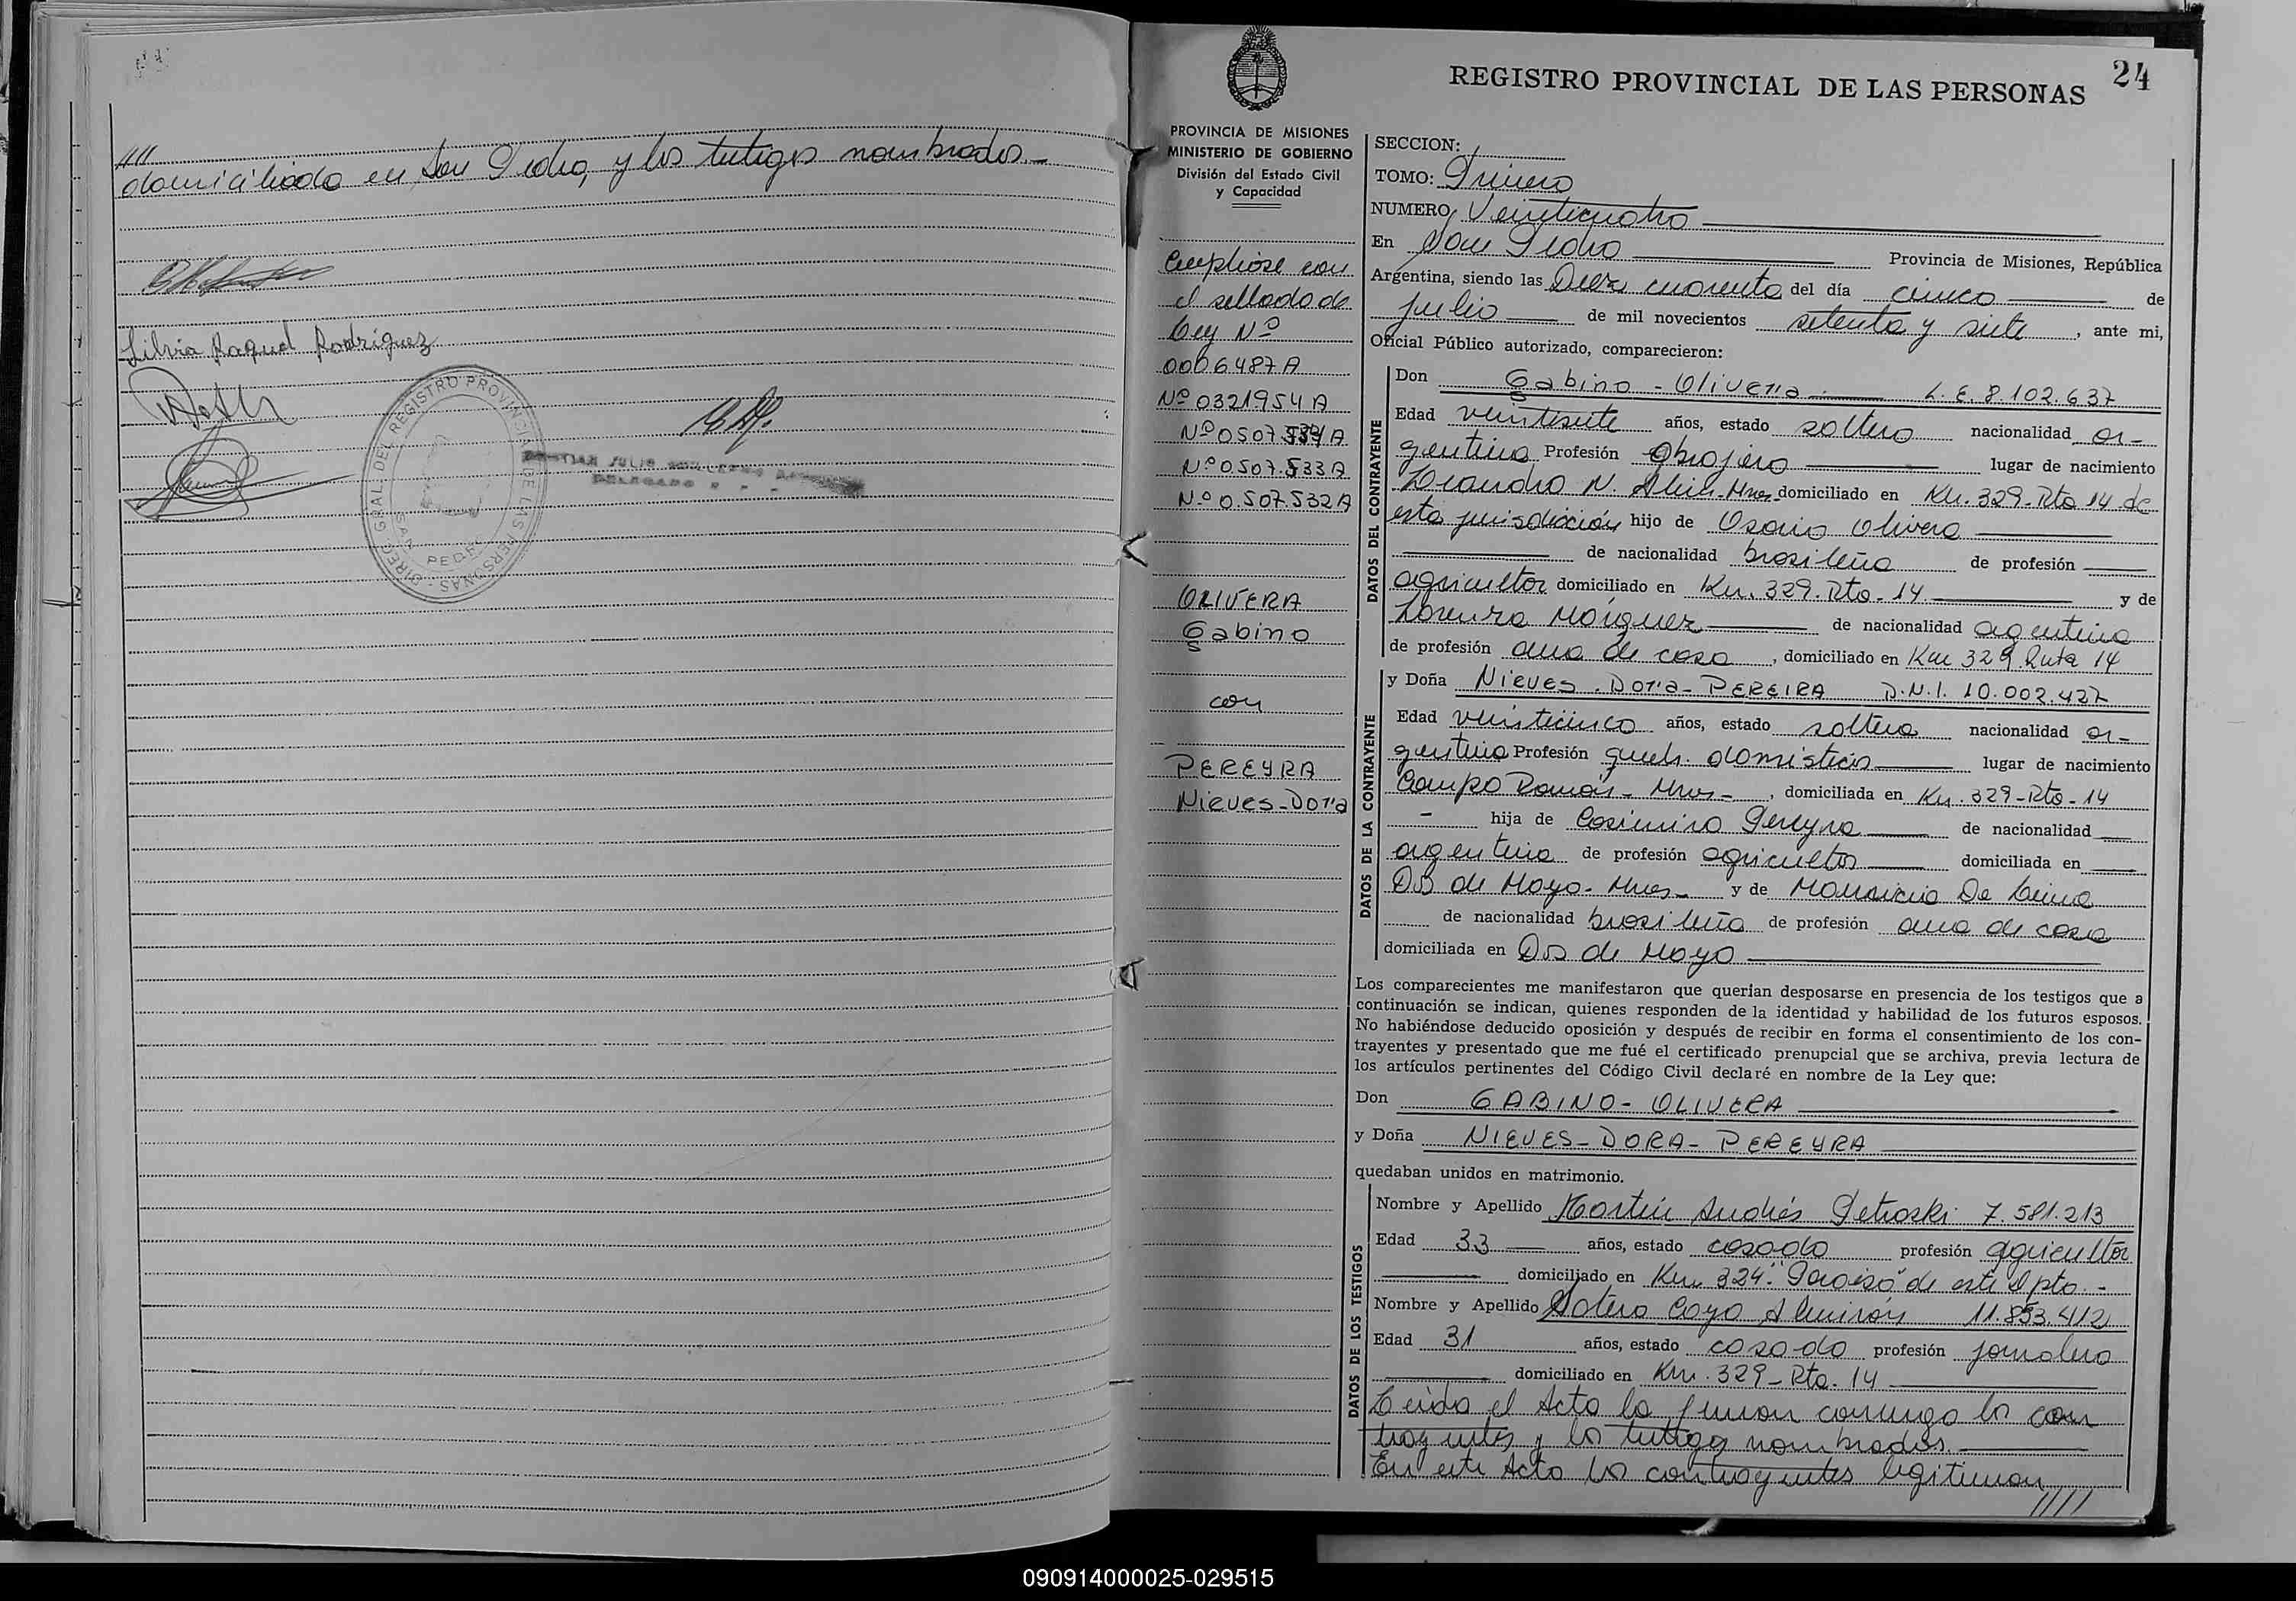 ////
domiciliado en San Pedro, y los testigos nombrados.-
Silvia Raquel Rodríguez
DIREC. GRAL. DEL REGISTRO PROVINCIAL DE LAS PERSONAS
SAN PEDRO
24
REGISTRO PROVINCIAL DE LAS PERSONAS
PROVINCIA DE MISIONES
MINISTERIO DE GOBIERNO
División del Estado Civil
y Capacidad
Cumpliose con
el sellado de
Ley Nº
0006487A
Nº 0321954A
Nº 0507.534A
Nº 0.507.533A
Nº 0.507.532A
OLIVERA
Gabino
con
PEREYRA
Nieves-Dora
SECCION:
TOMO: Primero
NUMERO, Veinticuatro
En San Pedro Provincia de Misiones, República
Argentina, siendo las Diez cuarenta del día cinco de
julio de mil novecientos setenta y siete, ante mi,
Oficial Público autorizado, comparecieron:
DATOS DEL CONTRAYENTE
Don Gabino - Olivera L.E. 8.102.637
Edad veintisiete años, estado soltero nacionalidad ar-
gentina Profesión Obrajero lugar de nacimiento
Leandro N. Alem-Mnes domiciliado en Km. 329-Rta 14 de
esta jurisdicción hijo de Osorio Olivera
de nacionalidad brasileña de profesión
agricultor domiciliado en Km. 329. Rta-14 y de
Lorenza Márquez de nacionalidad argentina
de profesión ama de casa, domiciliado en Km 329 Ruta 14
DATOS DE LA CONTRAYENTE
y Doña Nieves. Dora- PEREIRA D.N.I. 10.002.427
Edad veinticinco años, estado soltera nacionalidad ar-
gentina Profesión queh. domésticos lugar de nacimiento
Campo Ramón- Mnes-, domiciliada en Km. 329-Rta-14
- hija de Casimiro Pereyra de nacionalidad
argentina de profesión agricultor domiciliada en
Dos de Mayo- Mnes- y de Mauricia De Lima
de nacionalidad brasileña de profesión ama de casa
domiciliada en Dos de Mayo
Los comparecientes me manifestaron que querían desposarse en presencia de los testigos que a
continuación se indican, quienes responden de la identidad y habilidad de los futuros esposos.
No habiéndose deducido oposición y después de recibir en forma el consentimiento de los con-
trayentes y presentado que me fué el certificado prenupcial que se archiva, previa lectura de
los artículos pertinentes del Código Civil declaré en nombre de la Ley que:
Don GABINO- OLIVERA
y Doña NIEVES-DORA-PEREYRA
quedaban unidos en matrimonio.
DATOS DE LOS TESTIGOS
Nombre y Apellido Martín Andrés Petroski 7.581.213
Edad 33 años, estado casado profesión agricultor
domiciliado en Km 324." Paraíso" de este Dpto.-
Nombre y Apellido Sotero Cayo Almirón 11.853.412
Edad 31 años, estado casado profesión jornalero
domiciliado en Km. 329-Rta.14
Leída el Acta la firman conmigo los con
trayentes y los testigos nombrados.
En este Acto los contrayentes legitiman
////
090914000025-029515